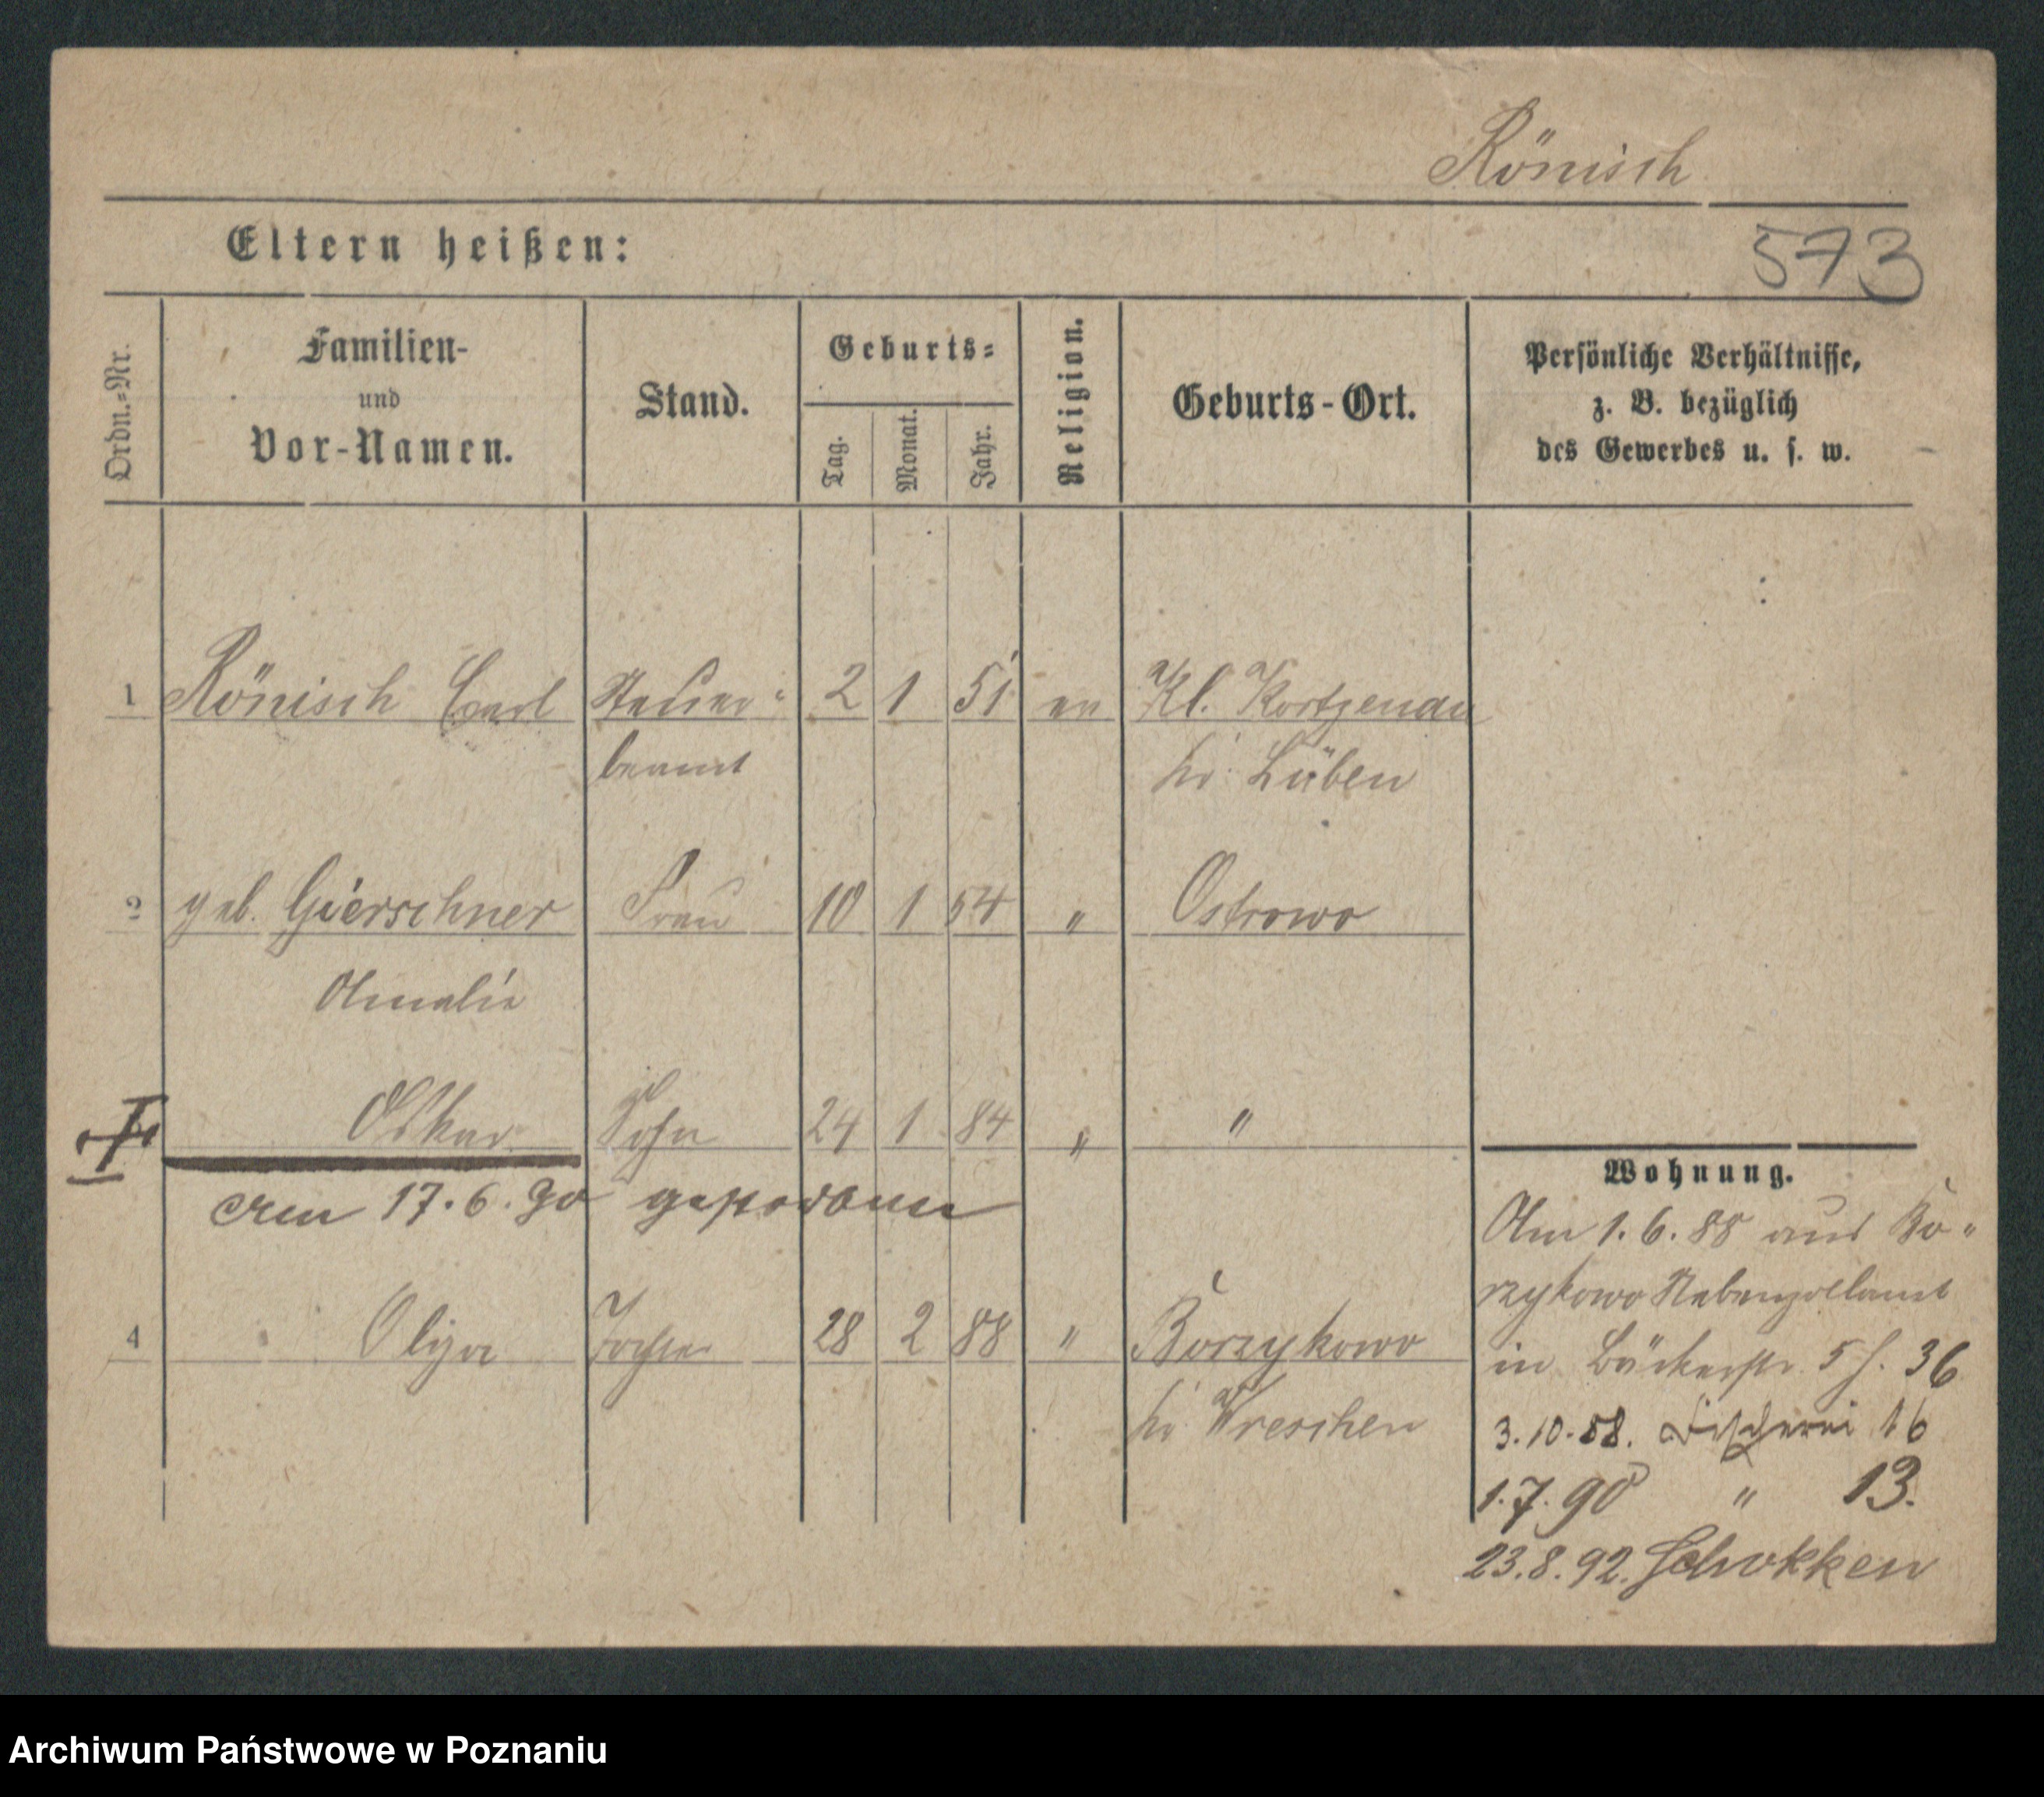 Rönisch
Eltern heißen:
573
Ordn.-Nr.
Familien-
und
Vor-Namen.
Stand.
Geburts-
Tag.
Monat.
Jahr.
Religion.
Geburts-Ort.
Persönliche Verhältnisse,
z. B. bezüglich
des Gewerbes u. s. w.
1 Rönisch Carl Steuer- 2 1 51 ev Kl. Kortzenau
beamt Kr. Lüben
2 geb. Gierschner Frau 10 1 54 " Ostrowo
Amalie
Oskar Sohn 24 1 84 " "
am 17.6.90 gestorben
4 Olga Tochter 28 2 88 " Borzykowo
Kr. Wreschen
Wohnung.
Am 1.6.88 aus Bo-
rzykowo Nebenzollamt
in Bäckerstr. 5 f. 36
3.10.88. Fischerei 16
1.7.90 " 13.
23.8.92. Schokken
Archiwum Państwowe w Poznaniu